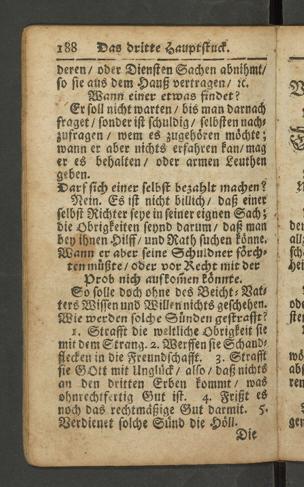 188 Das dritte Hauptstuck.
deren / oder Diensten Sachen abnihmt /
so sie aus dem Hauß vertragen / ꝛc.
Wann einer etwas findet?
Er soll nicht warten / bis man darnach
fraget / sonder ist schuldig / selbsten nach-
zufragen / wem es zugehören möchte;
wann er aber nichts erfahren kan / mag
er es behalten / oder armen Leuthen
geben.
Darf sich einer selbst bezahlt machen?
Nein. Es ist nicht billich / daß einer
selbst Richter seye in seiner eignen Sach;
die Obrigkeiten seynd darum / daß man
bey ihnen Hilff / und Rath suchen könne.
Wann er aber seine Schuldner förch-
ten müßte / oder vor Recht mit der
Prob nich auskomen könnte.
So solle doch ohne des Beicht-Vat-
ters Wissen und Willen nichts geschehen.
Wie werden solche Sünden gestrafft?
1. Strafft die weltliche Obrigkeit sie
mit dem Strang. 2. Werffen sie Schand-
flecken in die Freundschafft. 3. Strafft
sie GOtt mit Unglück / also / daß nichts
an den dritten Erben kommt / was
ohnrechtfertig Gut ist. 4. Frißt es
noch das rechtmäßige Gut darmit. 5.
Verdienet solche Sünd die Höll.
Die